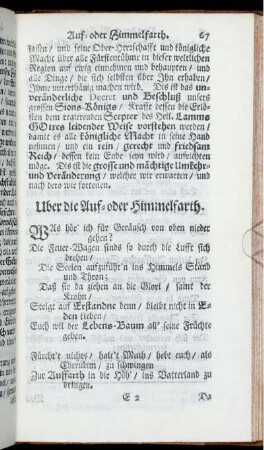 Auf- oder Himmelfarth. 67
sassen / und seine Ober-Herrschafft und königliche
Macht über alle Fürstenthüme in dieser weltlichen
Region auf ewig einnehmen und behaupten / und
alle Dinge / die sich selbsten über Ihn erhaben /
Ihme unterthänig machen wird. Dis ist das un-
veränderliche Decret und Beschluß unsers
grossen Sions-Königs / Krafft dessen die Erlö-
sten dem regierenden Scepter des Heil. Lamms
GOttes leidender Weise vorstehen werden /
damit es alle königliche Macht in seine Hand
nehmen / und ein rein / gerecht und friedsam
Reich / dessen kein Ende seyn wird / aufrichten
möge. Dis ist die grosse und mächtige Umkehr-
und Veränderung / welcher wir erwarten / und
nach dero wir forteilen.
Uber die Auf- oder Himmelfarth.
WAs hör' ich für Geräusch von oben nieder
gehen?
Die Feuer-Wagen sinds so durch die Lufft sich
drehen /
Die Seelen aufzuführ'n ins Himmels Stand
und Thron;
Daß sie da ziehen an die Glori / samt der
Krohn /
Steigt auf Erstandne denn / bleibt nicht in E-
den kleben /
Euch wil der Lebens-Baum all' seine Früchte
geben.
Fürcht't nichts / halt't Muth / hebt euch / als
Cherubim / zu schwingen
Zur Auffarth in die Höh' / ins Vatterland zu
dringen.
E 2 Da